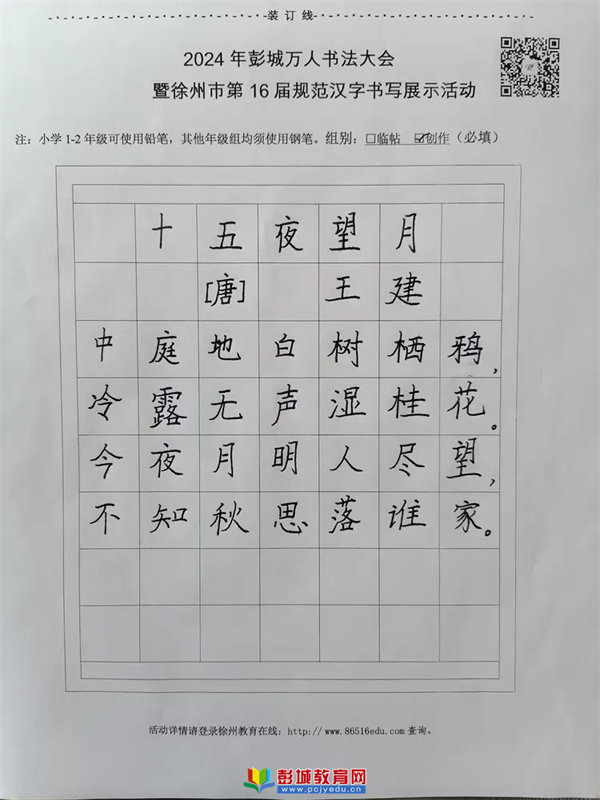 装订线
2024年彭城万人书法大会
暨徐州市第16届规范汉字书写展示活动
注：小学1-2年级可使用铅笔，其他年级组均须使用钢笔。组别：□临帖 ☑创作（必填）
十五夜望月
[唐] 王建
中庭地白树栖鸦，
冷露无声湿桂花。
今夜月明人尽望，
不知秋思落谁家。
活动详情请登录徐州教育在线：http://www.86516edu.com查询。
彭城教育网
www.pcjyedu.cn